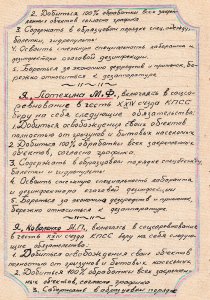 2. Добиться 100% обработки всех закреп-
ленных объектов согласно графика
3. Содержать в образцовом порядке спецодежду,
бытовки, гидропульты
4. Освоить смежную специальность лаборанта и
дезинфектора очаговой дезинфекции.
5. Бороться за экономию ядоватов и приманок, бе-
режно относиться к дезаппаратуре
Я, Лапехина М.Ф., включаясь в соцсо-
ревнование в честь XXIV съезда КПСС
беру на себя следующие обязательства:
1. Добиться освобождения своих объектов
полностью от грызунов и бытовых насекомых
2. Добиться 100% обработки всех закрепленных
объектов, согласно графика.
3. Содержать в образцовом порядке спецодежду,
бытовки и гидропульты.
4. Освоить смежную специальность лаборанта
и дезинфектора очаговой дезинфекции
5. Бороться за экономию ядоватов и приманок,
бережно относиться к дезаппаратуре.
Я, Коваленко Н.П., включаясь в соцсоревнование
в честь XXIV съезда КПСС беру на себя следу-
ющие обязательства:
1. Добиться освобождения своих объектов
полностью от грызунов и бытовых насекомых.
2. Добиться 100% обработки всех закреплен-
ных объектов, согласно графика
3. Содержать в образцовом порядке